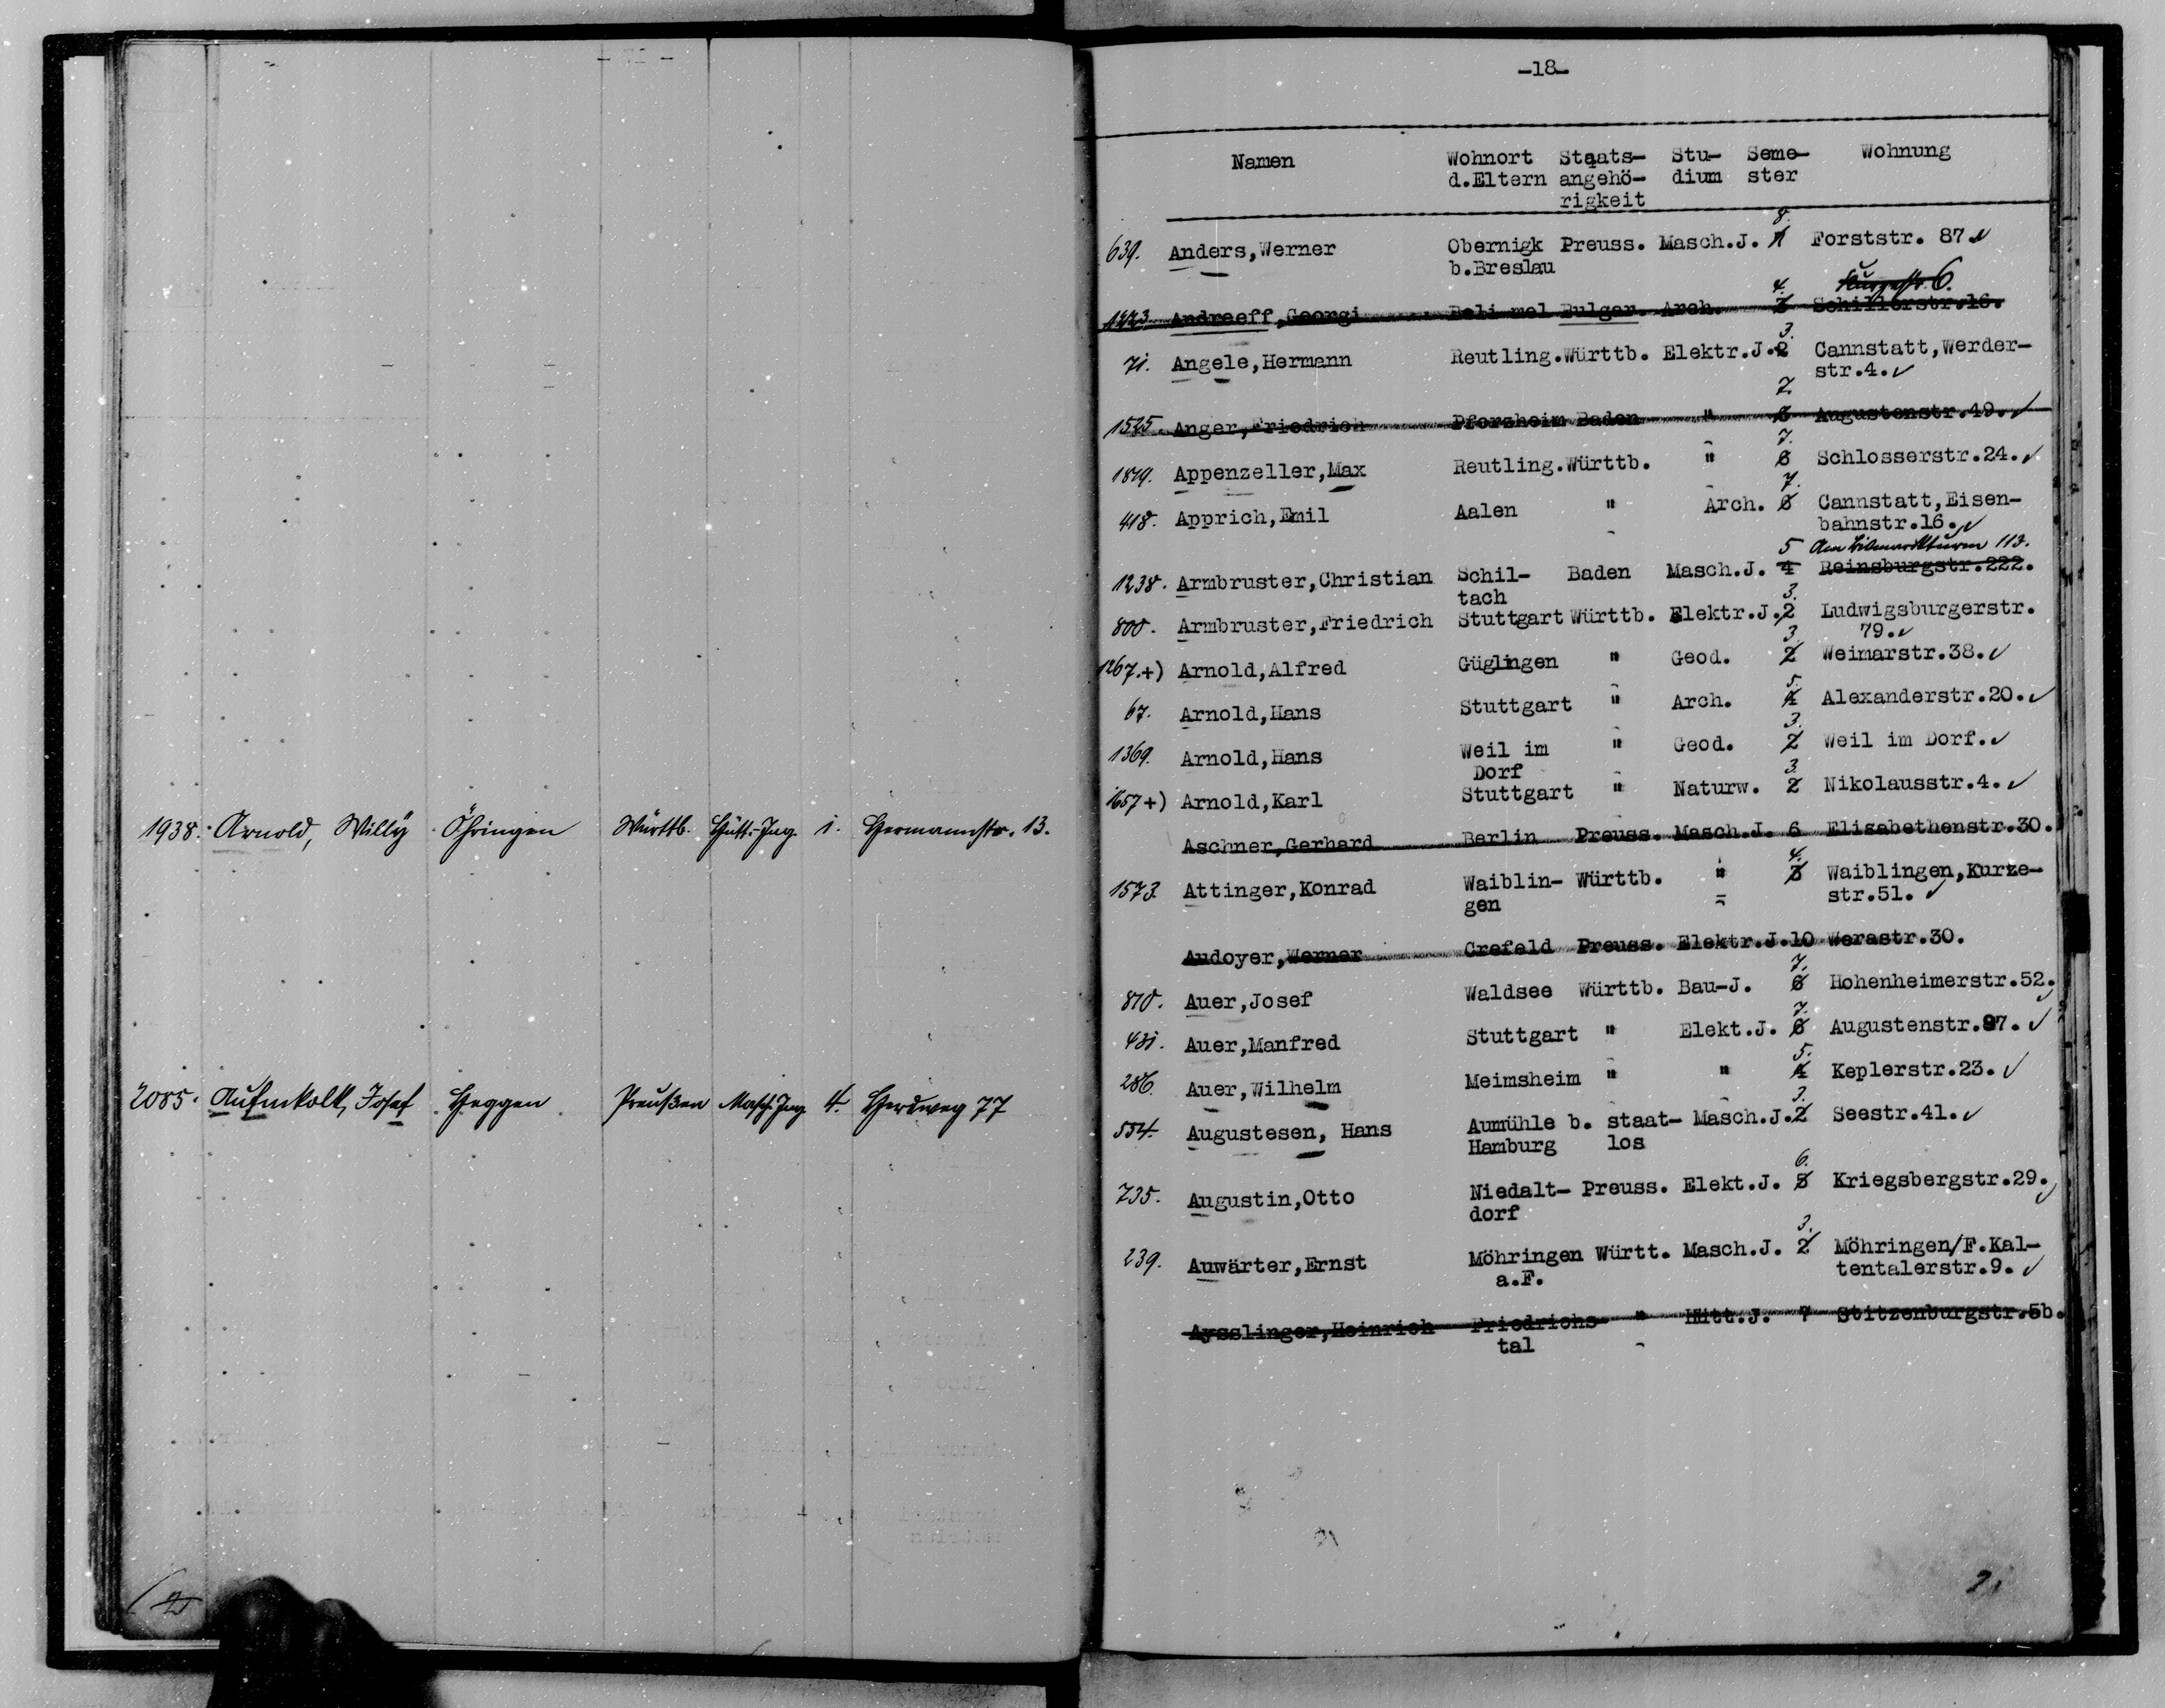 1938. Arnold, Willy Öhringen Württb. Hütt.-Ing. 1. Hermannstr. 13.
2085. Aufmkolk, Josef Heggen Preußen Masch. Ing. 4. Herdweg 77
-18-
Namen Wohnort Staats- Stu- Seme- Wohnung
d.Eltern angehö- dium ster
rigkeit
8.
639. Anders,Werner Obernigk Preuss. Masch.J. Forststr. 87.
b.Breslau
4. 6.
1223. Andreeff,Georgi Beli mel Bulgar. Arch. 3 Schillerstr.16.
3.
71. Angele,Hermann Reutling.Württb. Elektr.J.2 Cannstatt,Werder-
str.4.
7.
1525. Anger,Friedrich Pforzheim Baden " 6 Augustenstr.49.
7.
1879. Appenzeller,Max Reutling.Württb. " 6 Schlosserstr.24.
7.
418. Apprich,Emil Aalen " Arch. 6 Cannstatt,Eisen-
bahnstr.16.
5 Am Bismarckturm 113.
1238. Armbruster,Christian Schil- Baden Masch.J. 4 Reinsburgstr.222.
tach
3.
800. Armbruster,Friedrich Stuttgart Württb. Elektr.J.2 Ludwigsburgerstr.
79.
3.
1267.+) Arnold,Alfred Güglingen " Geod. 2 Weimarstr.38.
5.
67. Arnold,Hans Stuttgart " Arch. 4 Alexanderstr.20.
3.
1369. Arnold,Hans Weil im " Geod. 2 Weil im Dorf.
Dorf
3.
1657+) Arnold,Karl Stuttgart " Naturw. 2 Nikolausstr.4.
Aschner,Gerhard Berlin Preuss. Masch.J. 6 Elisabethenstr.30.
4.
1573. Attinger,Konrad Waiblin- Württb. " 3 Waiblingen,Kurze-
gen str.51.
Audoyer,Werner Crefeld Preuss. Elektr.J.10 Werastr.30.
7.
810. Auer,Josef Waldsee Württb. Bau-J. 6 Hohenheimerstr.52.
7.
431. Auer,Manfred Stuttgart " Elekt.J. 6 Augustenstr.97.
5.
286. Auer,Wilhelm Meimsheim " " 4 Keplerstr.23.
3.
554. Augustesen, Hans Aumühle b. staat- Masch.J.2 Seestr.41.
Hamburg los
6.
735. Augustin,Otto Niedalt- Preuss. Elekt.J. 5 Kriegsbergstr.29.
dorf
3.
239. Auwärter,Ernst Möhringen Württ. Masch.J. 2 Möhringen/F.Kal-
a.F. tentalerstr.9.
Aysslinger,Heinrich Friedrichs- " Hütt.J. 7 Stitzenburgstr.5b.
tal